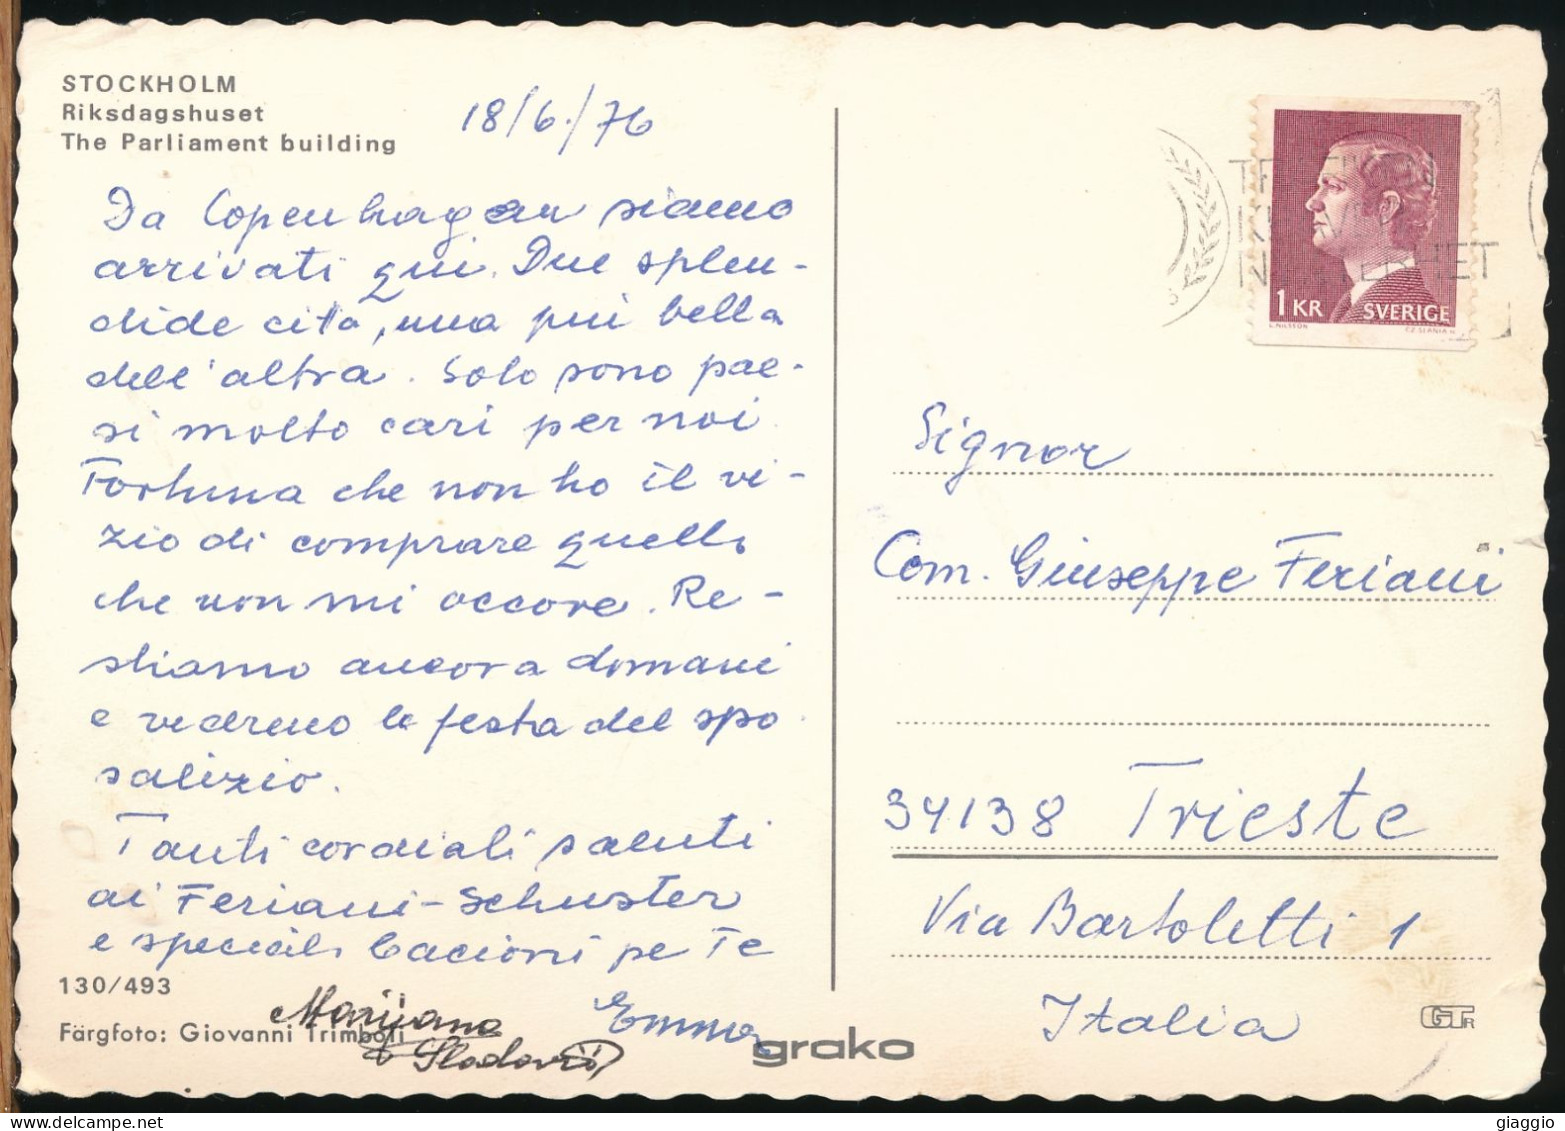 STOCKHOLM
Riksdagshuset
The Parliament building
18/6./76
Da Copenhagen siamo
arrivati qui. Due splen-
dide cità, una più bella
dell'altra. Solo sono pae-
si molto cari per noi.
Fortuna che non ho il vi-
zio di comprare quello
che non mi occore. Re-
stiamo ancora domani
e vedremo la festa del spo
salizio.
Tanti cordiali saluti
ai Feriani-Schuster
e speciali bacioni pe Te
Emma
Marijana
130/493
Färgfoto: Giovanni Trimboli
grako
1 KR SVERIGE
L. NILSSON CZ SLANIA
Signor
Com. Giuseppe Feriani
34138 Trieste
Via Bartoletti 1
Italia
GTR
giaggio